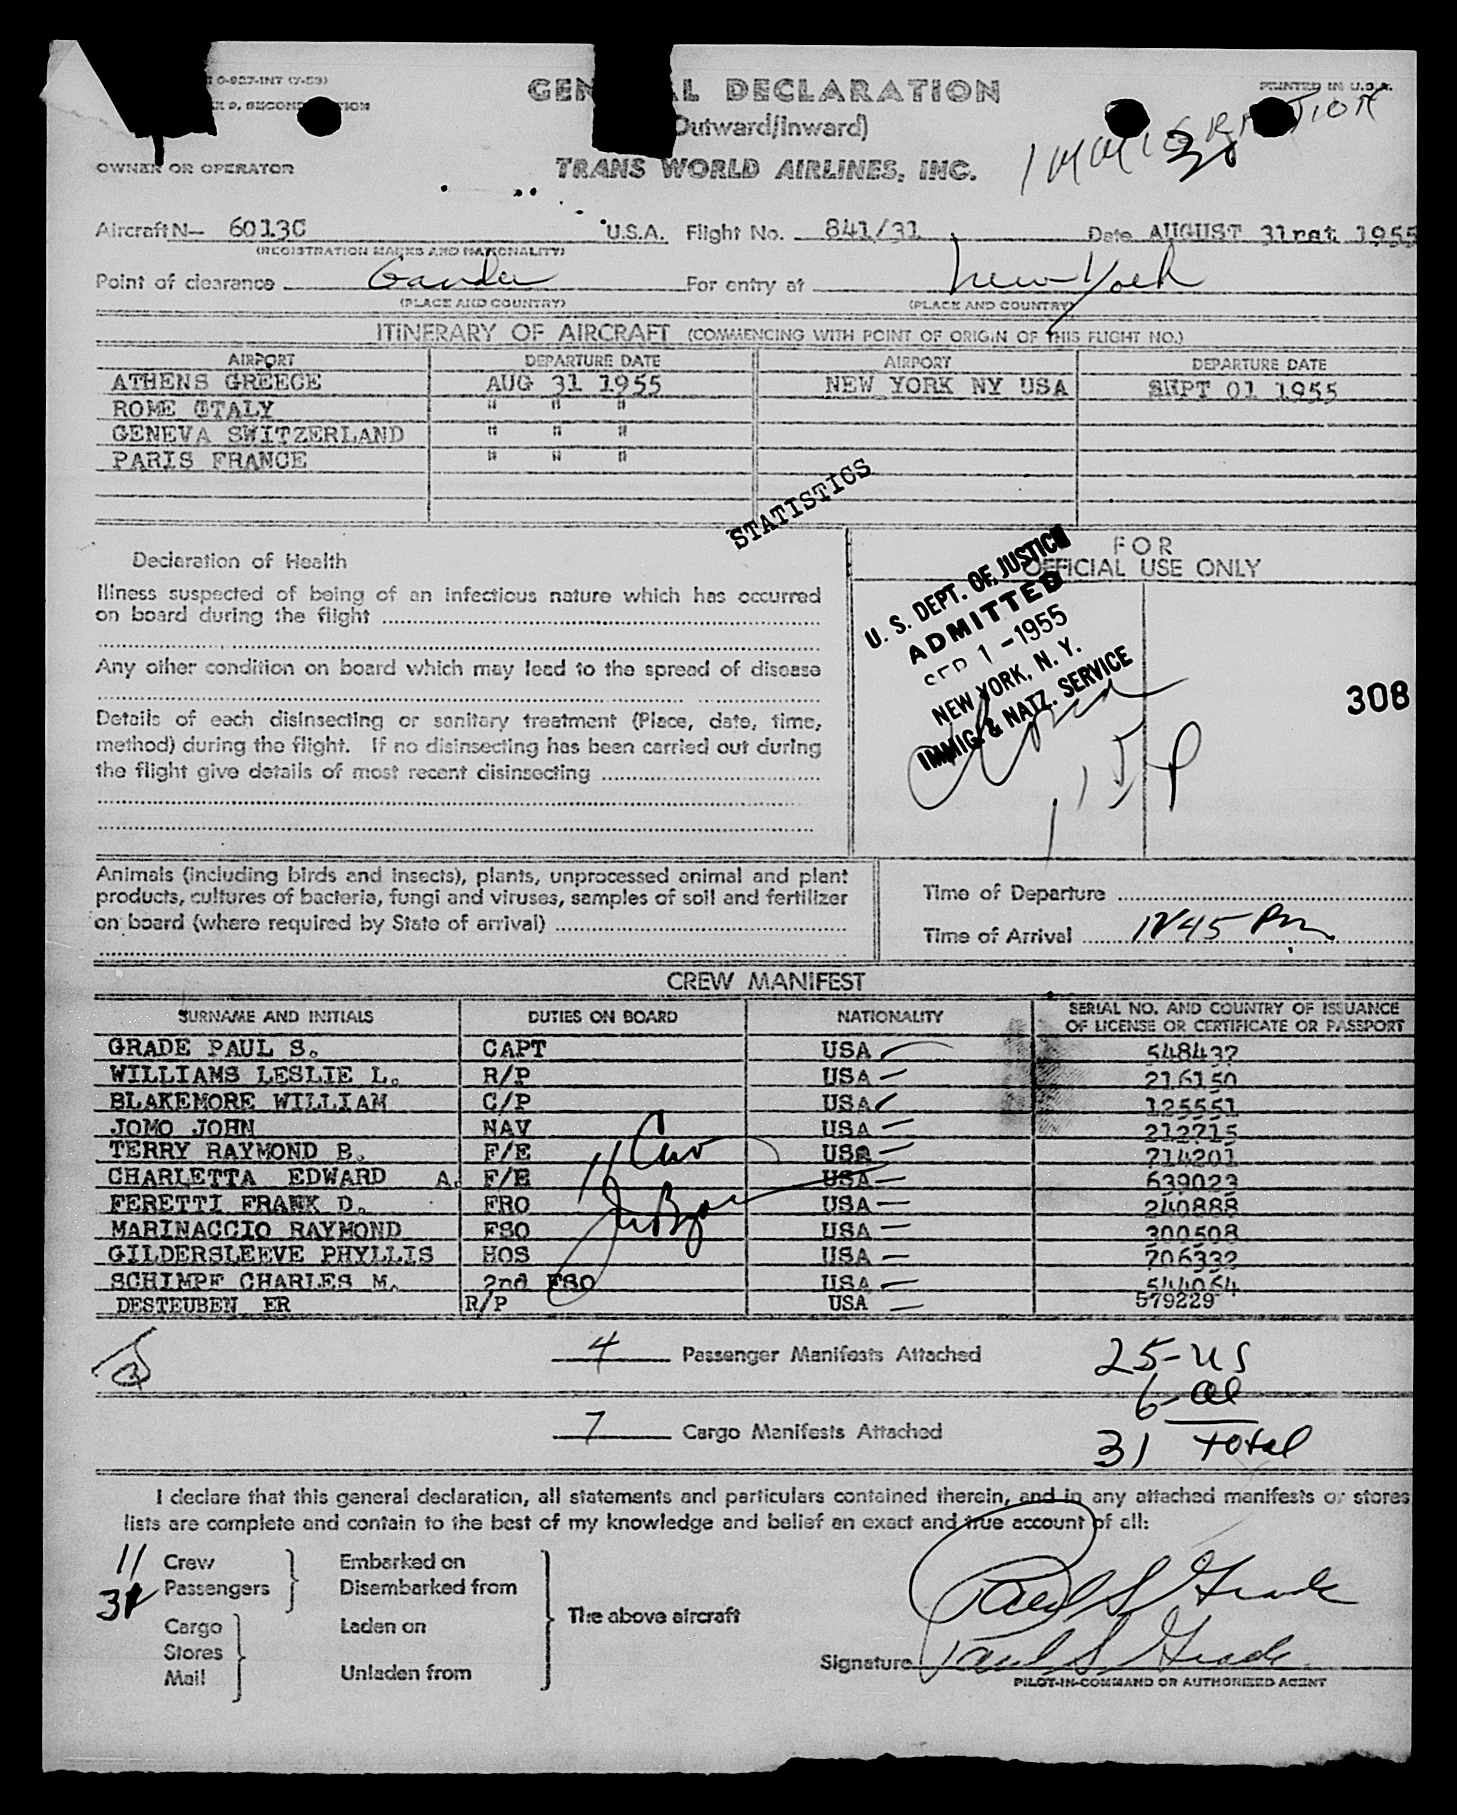 O-937-INT (7-53)
GEN AL DECLARATION
PRINTED IN U.S.A.
(Outward/Inward)
IMMIGRATION
OWNER OR OPERATOR
TRANS WORLD AIRLINES, INC.
Aircraft N— 6013C U.S.A. Flight No. 841/31 Date AUGUST 31rst 1955
(REGISTRATION MARKS AND NATIONALITY)
Point of clearance Gander For entry at New York
(PLACE AND COUNTRY) (PLACE AND COUNTRY)
ITINERARY OF AIRCRAFT (COMMENCING WITH POINT OF ORIGIN OF THIS FLIGHT NO.)
AIRPORT DEPARTURE DATE AIRPORT DEPARTURE DATE
ATHENS GREECE AUG 31 1955 NEW YORK NY USA SEPT 01 1955
ROME ITALY " " "
GENEVA SWITZERLAND " " "
PARIS FRANCE " " "
STATISTICS
Declaration of Health
FOR
OFFICIAL USE ONLY
Illness suspected of being of an infectious nature which has occurred
on board during the flight
Any other condition on board which may lead to the spread of disease
Details of each disinsecting or sanitary treatment (Place, date, time,
method) during the flight. If no disinsecting has been carried out during
the flight give details of most recent disinsecting
U. S. DEPT. OF JUSTICE
ADMITTED
SEP 1 - 1955
NEW YORK, N. Y.
IMMIG. & NATZ. SERVICE
308
Animals (including birds and insects), plants, unprocessed animal and plant
products, cultures of bacteria, fungi and viruses, samples of soil and fertilizer
on board (where required by State of arrival)
Time of Departure
Time of Arrival 1245 Pm
CREW MANIFEST
SURNAME AND INITIALS DUTIES ON BOARD NATIONALITY SERIAL NO. AND COUNTRY OF ISSUANCE
OF LICENSE OR CERTIFICATE OR PASSPORT
GRADE PAUL S. CAPT USA 548432
WILLIAMS LESLIE L. R/P USA 216150
BLAKEMORE WILLIAM C/P USA 125551
JOMO JOHN NAV USA 212715
TERRY RAYMOND B. F/E USA 714201
CHARLETTA EDWARD A. F/E USA 639023
FERETTI FRANK D. FRO USA 240888
MARINACCIO RAYMOND FSO USA 300508
GILDERSLEEVE PHYLLIS HOS USA 706332
SCHIMPF CHARLES M. 2nd FSO USA 544064
DESTEUBEN ER R/P USA 579229
4 Passenger Manifests Attached
25-US
6-al
7 Cargo Manifests Attached
31 total
I declare that this general declaration, all statements and particulars contained therein, and in any attached manifests or stores
lists are complete and contain to the best of my knowledge and belief an exact and true account of all:
11 Crew Embarked on
31 Passengers Disembarked from
The above aircraft
Cargo Laden on
Stores
Mail Unladen from
Paul S. Grade
Signature Paul S. Grade
PILOT-IN-COMMAND OR AUTHORIZED AGENT